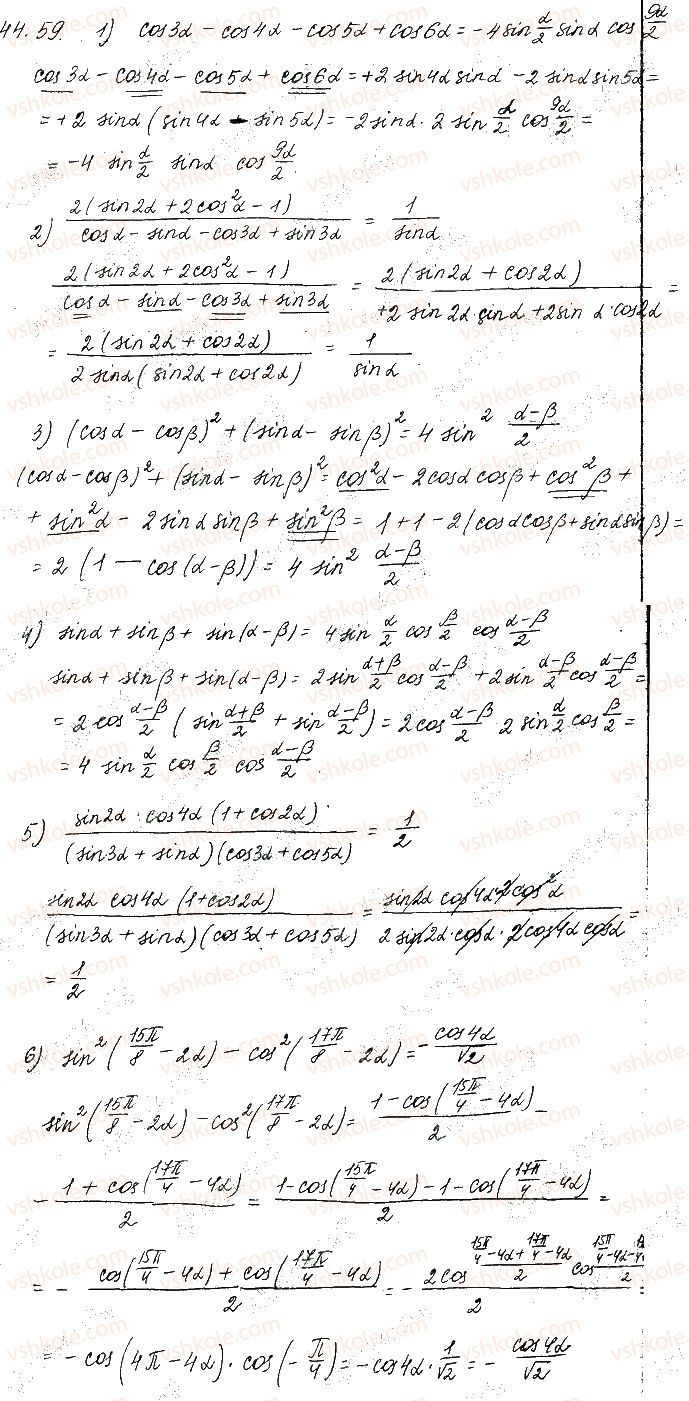 44.59. 1) cos3α − cos4α − cos5α + cos6α = −4 sin α/2 sinα cos 9α/2
cos3α − cos4α − cos5α + cos6α = +2 sin4α sinα − 2 sinα sin5α =
= +2 sinα (sin4α − sin5α) = −2 sinα · 2 sin α/2 cos 9α/2 =
= −4 sin α/2 sinα cos 9α/2
2) 2(sin2α + 2cos²α − 1) / (cosα − sinα − cos3α + sin3α) = 1/sinα
2(sin2α + 2cos²α − 1) / (cosα − sinα − cos3α + sin3α) = 2(sin2α + cos2α) / (+2 sin2α sinα + 2 sinα · cos2α) =
= 2(sin2α + cos2α) / (2 sinα (sin2α + cos2α)) = 1/sinα
3) (cosα − cosβ)² + (sinα − sinβ)² = 4 sin² (α−β)/2
(cosα − cosβ)² + (sinα − sinβ)² = cos²α − 2cosα cosβ + cos²β +
+ sin²α − 2 sinα sinβ + sin²β = 1 + 1 − 2(cosα cosβ + sinα sinβ) =
= 2 (1 − cos(α−β)) = 4 sin² (α−β)/2
4) sinα + sinβ + sin(α−β) = 4 sin α/2 cos β/2 cos (α−β)/2
sinα + sinβ + sin(α−β) = 2 sin (α+β)/2 cos (α−β)/2 + 2 sin (α−β)/2 cos (α−β)/2 =
= 2 cos (α−β)/2 (sin (α+β)/2 + sin (α−β)/2) = 2 cos (α−β)/2 2 sin α/2 cos β/2 =
= 4 sin α/2 cos β/2 cos (α−β)/2
5) sin2α · cos4α (1 + cos2α) / ((sin3α + sinα)(cos3α + cos5α)) = 1/2
sin2α cos4α (1 + cos2α) / ((sin3α + sinα)(cos3α + cos5α)) = sin2α cos4α 2 cos²α / (2 sin2α · cosα · 2 cos4α cosα) =
= 1/2
6) sin² (15π/8 − 2α) − cos² (17π/8 − 2α) = − cos4α/√2
sin² (15π/8 − 2α) − cos² (17π/8 − 2α) = (1 − cos(15π/4 − 4α))/2 −
− (1 + cos(17π/4 − 4α))/2 = (1 − cos(15π/4 − 4α) − 1 − cos(17π/4 − 4α))/2 =
= − (cos(15π/4 − 4α) + cos(17π/4 − 4α))/2 = − 2cos (15π/4 − 4α + 17π/4 − 4α)/2 cos (15π/4 − 4α − /2 / 2 =
= − cos(4π − 4α) · cos(− π/4) = − cos4α · 1/√2 = − cos4α/√2